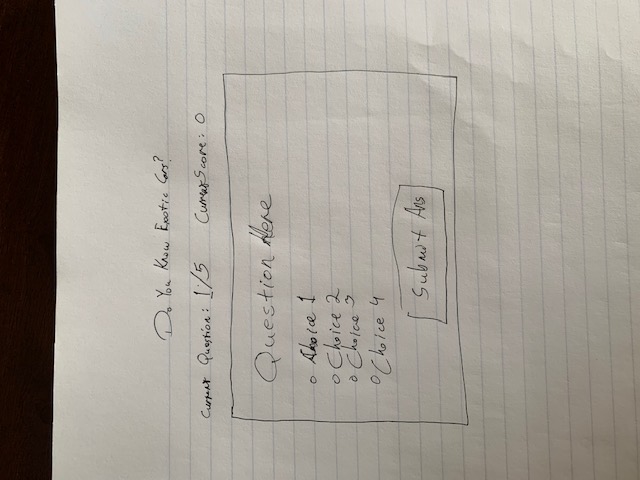 Do You Know Exotic Cars?
Current Question: 1/5 Current Score: 0
Question Here
Choice 1
Choice 2
Choice 3
Choice 4
Submit Ans